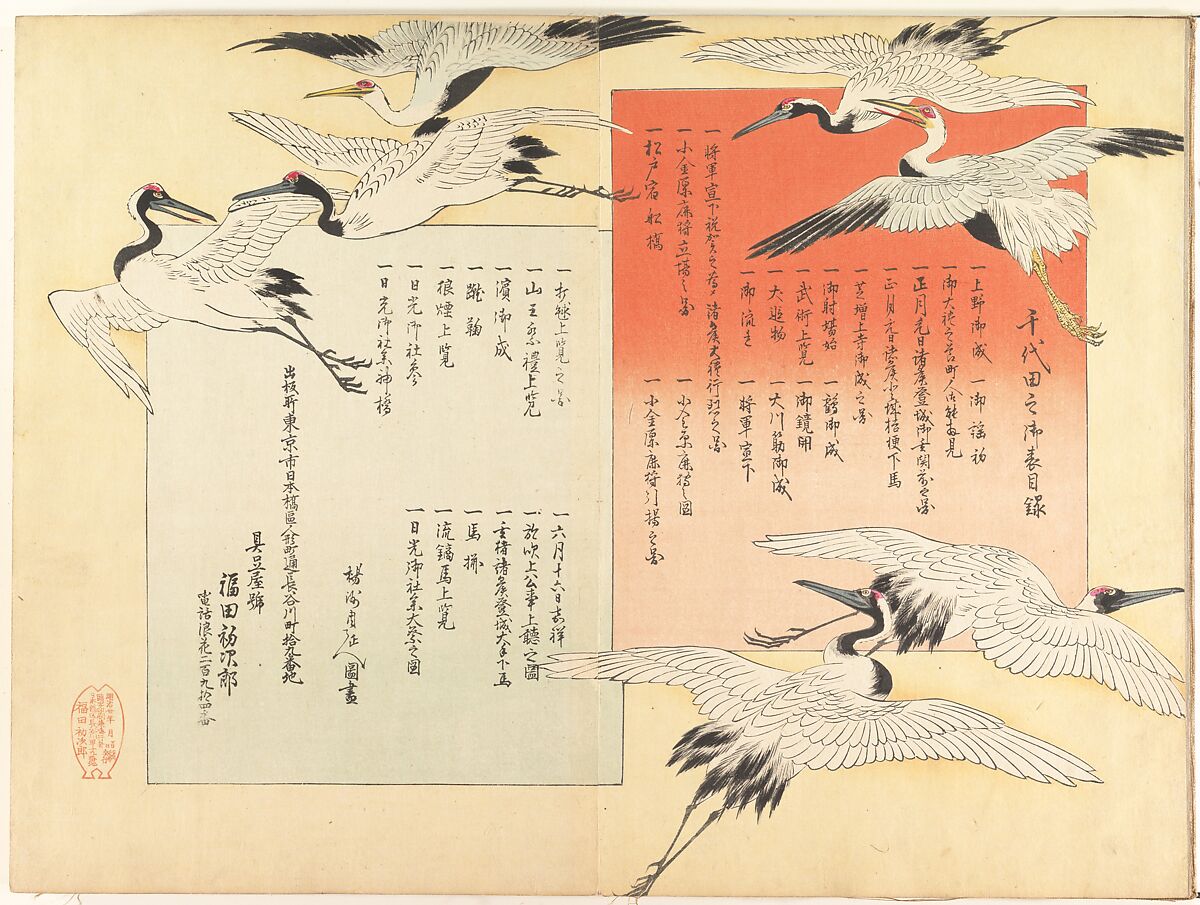 千代田之御表目録
一上野御成
一御謡初
一御大礼之節町人御能拝見
一正月元日諸矦登城御玄関前之図
一正月元日諸矦登城桔梗下馬
一芝増上寺御成之図
一御射場始
一鶴御成
一武術上覧
一御鏡開
一犬追物
一大川筋御成
一御流れ
一将軍宣下
一将軍宣下祝賀之為諸矦大礼行列之図
一小金原鹿狩立場之図
一小金原鹿狩之図
一松戸宿船橋
一小金原鹿狩引揚之図
一打毬上覧之図
一六月十六日嘉祥
一山王祭礼上覧
一於吹上公事上聴之図
一濱御成
一玄猪諸矦登城大手下馬
一蹴鞠
一馬揃
一狼煙上覧
一流鏑馬上覧
一日光御社参
一日光御社参大祭之図
一日光御社参神橋
楊洲周延人圖畫
出板所東京市日本橋區人形町通長谷川町拾九番地
具足屋號
福田初次郎
電話浪花二百九拾四番
福田初次郎